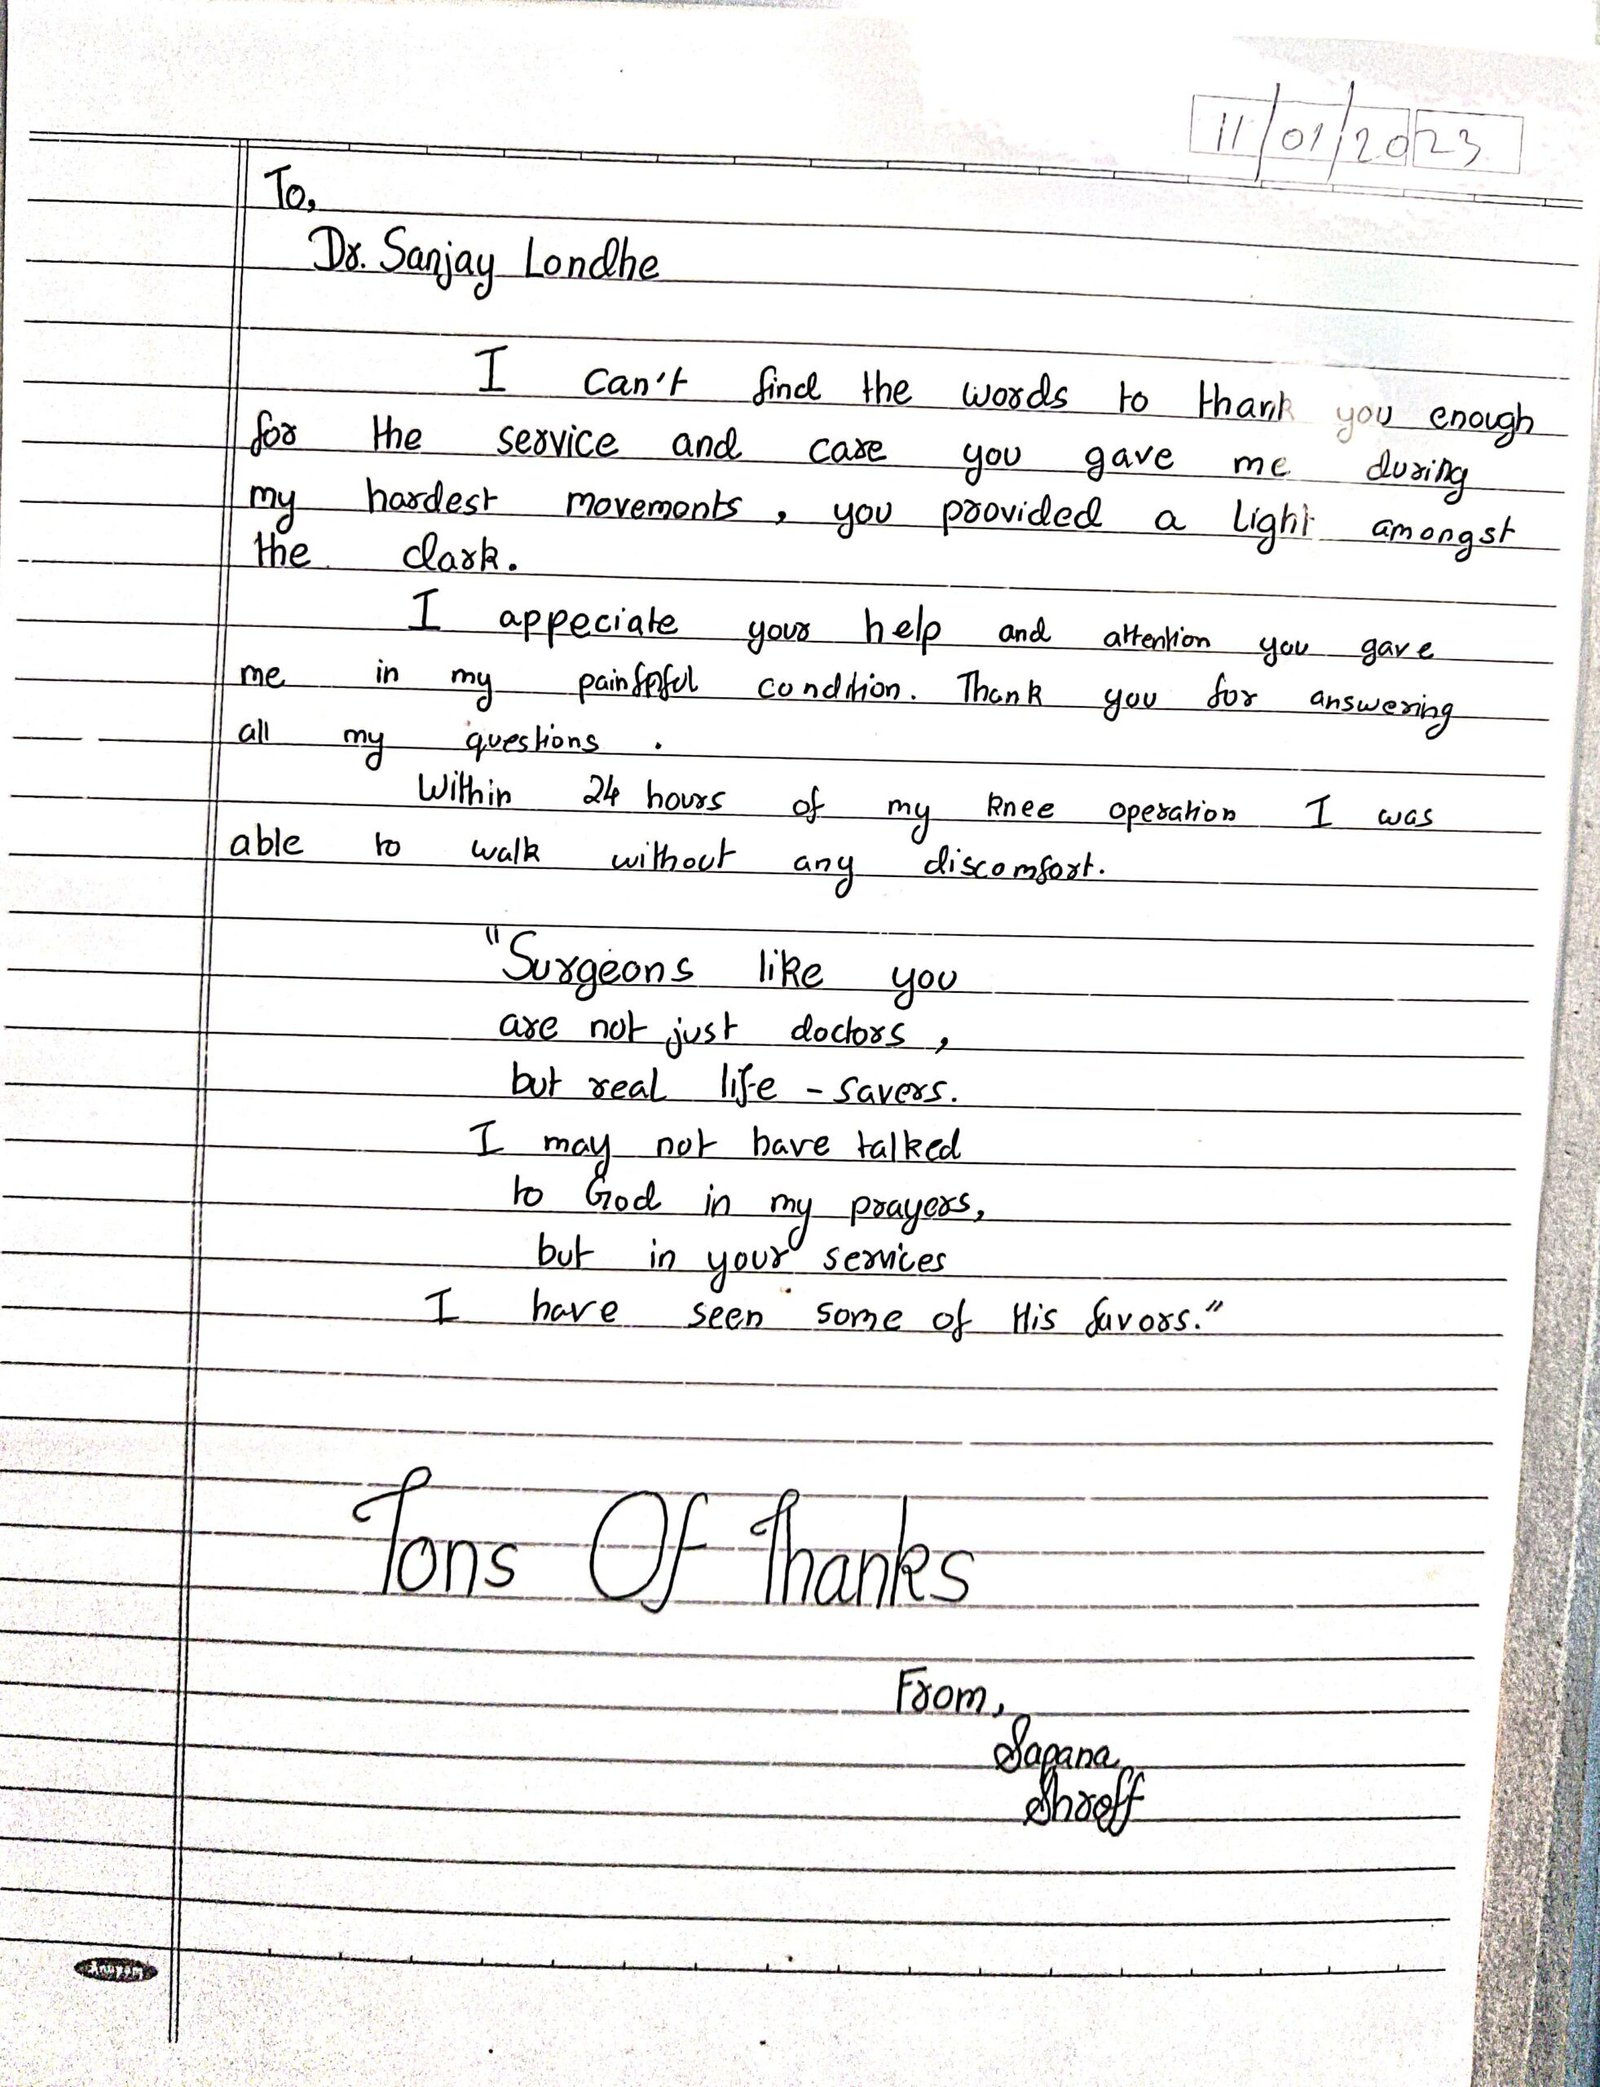 11/01/2023
To,
Dr. Sanjay Londhe
I can't find the words to thank you enough
for the service and care you gave me during
my hardest movements, you provided a light amongst
the dark.
I appeciate your help and attention you gave
me in my painful condition. Thank you for answering
all my questions.
Within 24 hours of my knee operation I was
able to walk without any discomfort.
"Surgeons like you
are not just doctors,
but real life-savers.
I may not have talked
to God in my prayers,
but in your services
I have seen some of His favors."
Tons Of Thanks
From,
Sapana
Shroff
Anupam